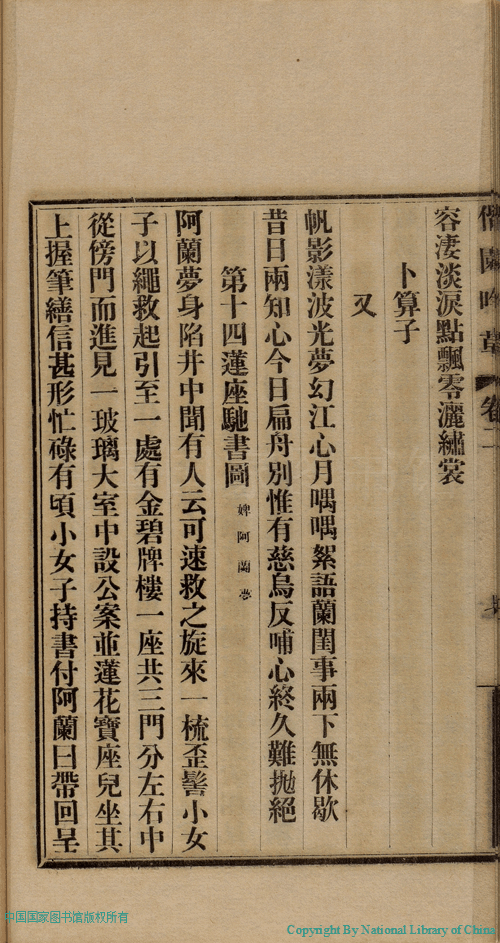 吟草 卷二
容淒淡淚點飄零灑繡裳
卜算子
又
帆影漾波光夢幻江心月喁喁絮語蘭閨事兩下無休歇
昔日兩知心今日扁舟別惟有慈烏反哺心終久難拋絕
第十四蓮座馳書圖 婢阿蘭夢
阿蘭夢身陷井中聞有人云可速救之旋來一梳歪髻小女
子以繩救起引至一處有金碧牌樓一座共三門分左右中
從傍門而進見一玻璃大室中設公案並蓮花寶座兒坐其
上握筆繕信甚形忙碌有頃小女子持書付阿蘭曰帶回呈
中国国家图书馆版权所有
Copyright By National Library of China